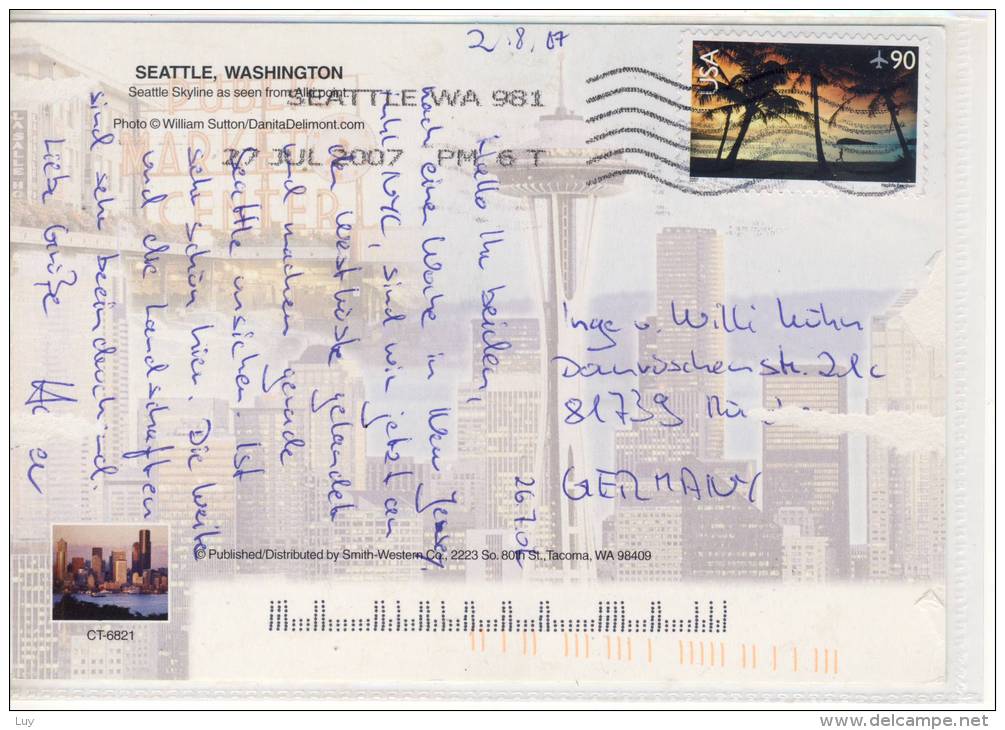 2.8.07
USA
90
SEATTLE, WASHINGTON
Seattle Skyline as seen from Alki point.
Photo © William Sutton/DanitaDelimont.com
SEATTLE WA 981
27 JUL 2007 PM 6 T
PUBLIC
MARKET
CENTER
26.7.07
Hallo Ihr beiden,
nach einer Woche in New Jersey,
inkl. NYC, sind wir jetzt an
der Westküste gelandet
und machen gerade
Seattle unsicher. Ist
sehr schön hier. Die Weite
und die Landschaften
sind sehr beeindruckend.
Liebe Grüße
Inge u. Willi Kühn
str. 21c
81739
GERMANY
© Published/Distributed by Smith-Western Co., 2223 So. 80th St., Tacoma, WA 98409
CT-6821
Luy
www.delcampe.net